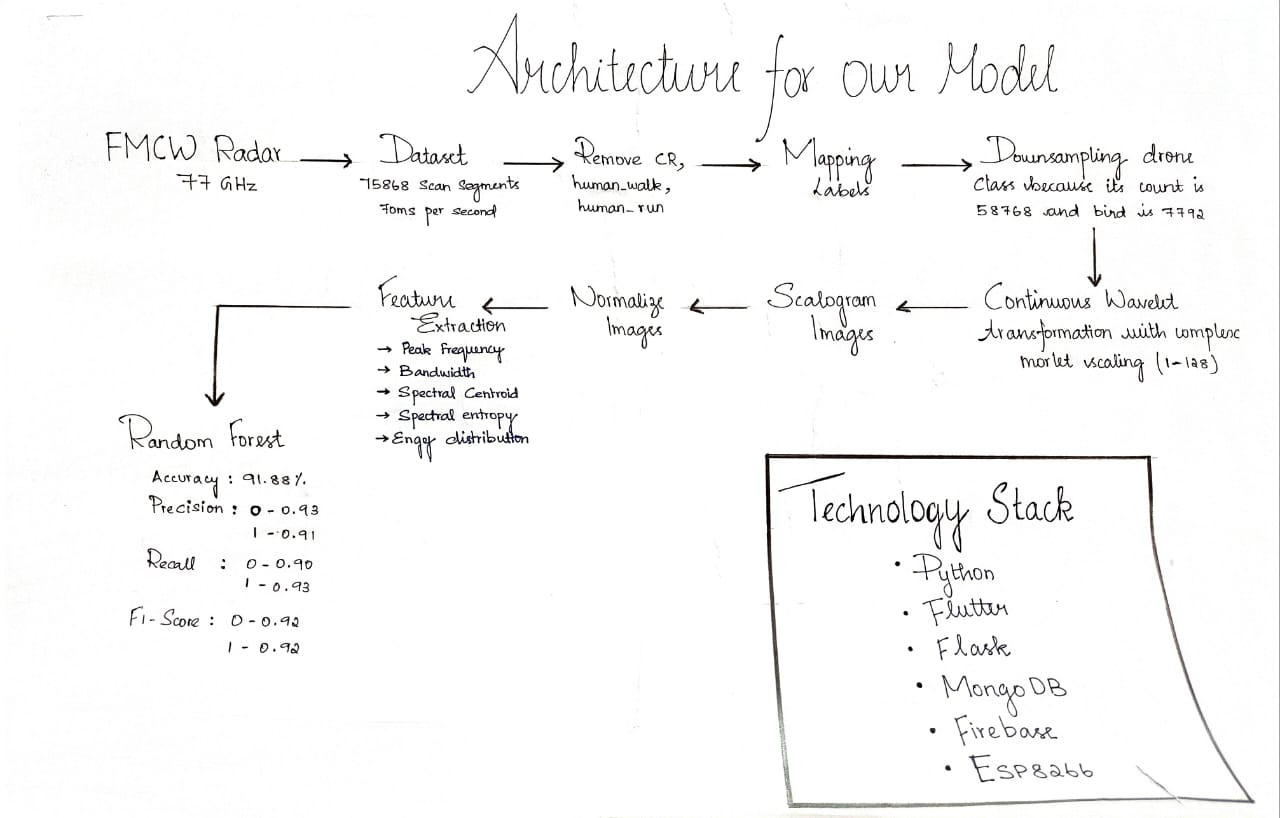 Architecture for our Model
FMCW Radar
77 GHz
Dataset
75868 Scan Segments
70ms per second
Remove CR,
human_walk,
human_run
Mapping
Labels
Downsampling drone
Class because its count is
58768 and bird is 7792
Continuous Wavelet
transformation with complex
morlet scaling (1-128)
Scalogram
Images
Normalize
Images
Feature
Extraction
→ Peak Frequency
→ Bandwidth
→ Spectral Centroid
→ Spectral entropy
→ Engy distribution
Random Forest
Accuracy : 91.88%
Precision : 0 - 0.93
1 - 0.91
Recall : 0 - 0.90
1 - 0.93
F1-Score : 0 - 0.92
1 - 0.92
Technology Stack
• Python
• Flutter
• Flask
• MongoDB
• Firebase
• ESP8266